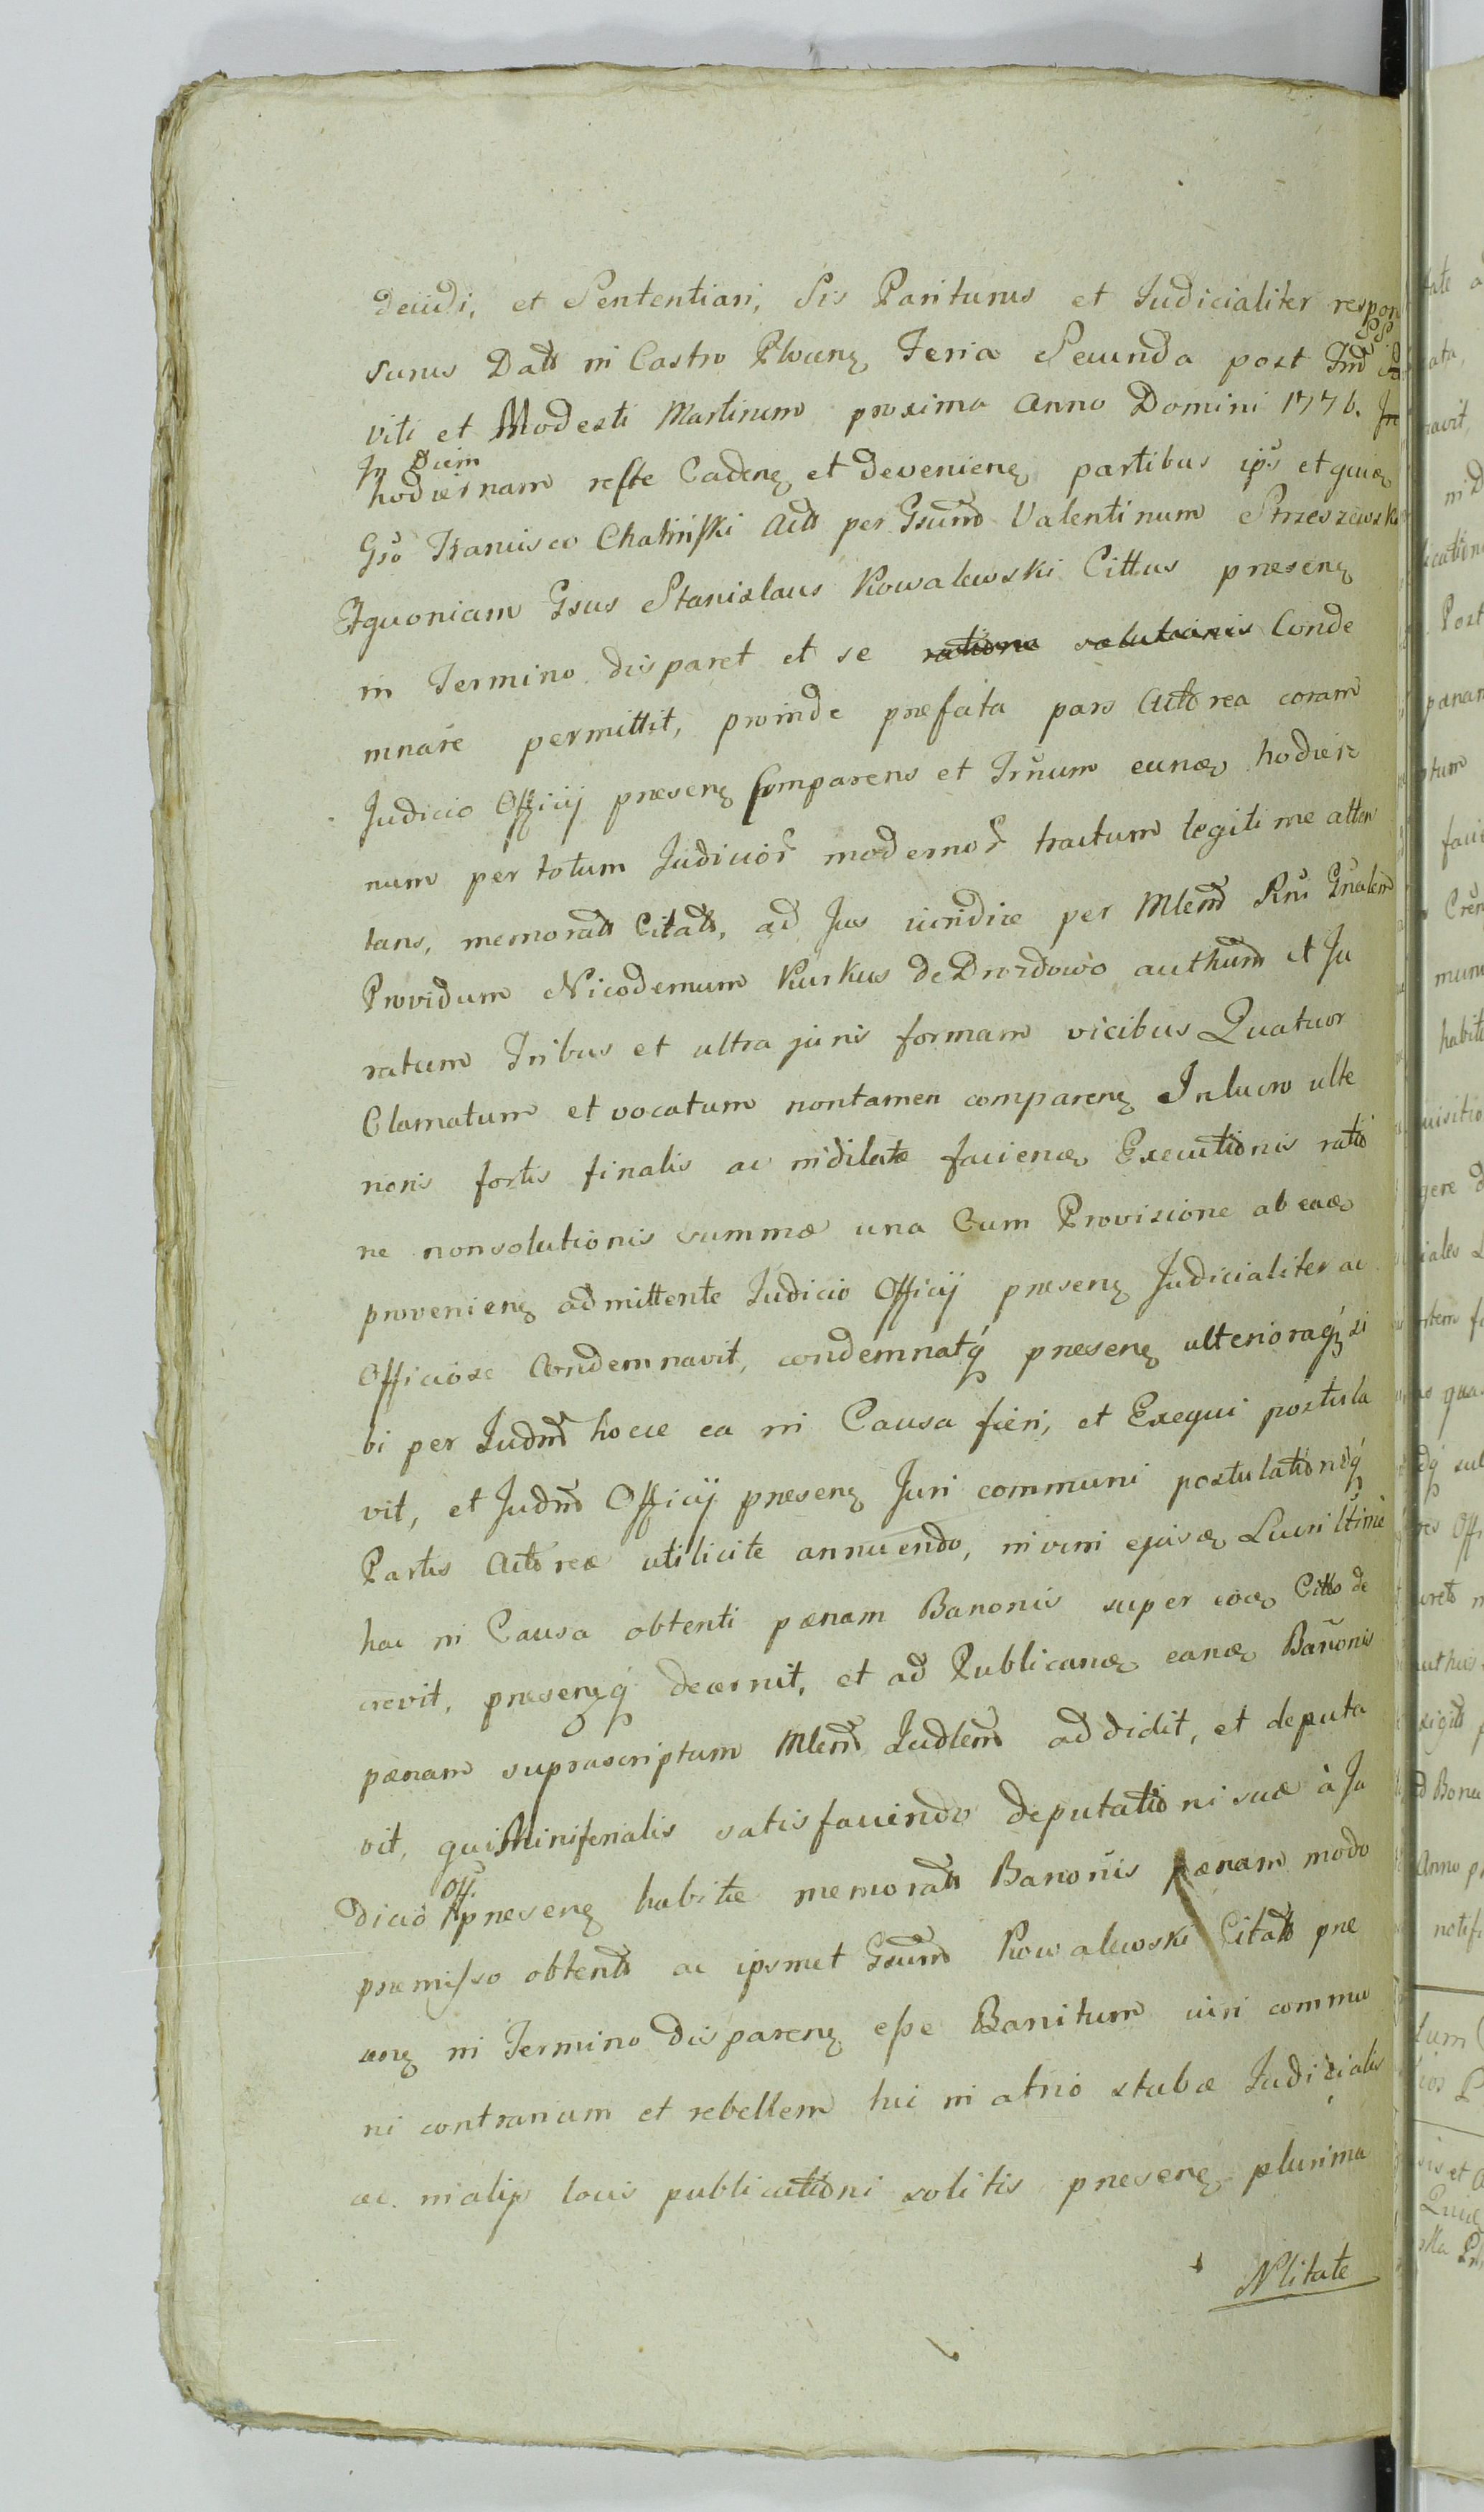 deiidi, et Sententiari, Sis Pariturus et Judicialiter respon
surus Datt in Castro Plocen Feria Secunda post Fm SS
Viti et Modesti Martirum proxima Anno Domini 1776.
In Diem
hodiernam reste Caden et devenien partibus ips et quia
Gso Francisco Chaliński Actt per Gsumd Valentinum Strzeszewski
Etquoniam Gsus Stanislaus Kowalewski Cittus presen
in Termino disparet et se ratione solutionis Conde
mnare permittit, proinde prefata pars Actorea coram
Judicio Officij presen Comparens et Trnum eund hodier
num per totum Judicior modernor tractum legitime atten
tans, memoratt Citatt, ad Jus iuridice per Mlemd Rni Gnalem
Providum Nicodemum Kurkus de Drozdowo authumd et Ju
ratum Tribus et ultra juris formam vicibus Quatuor
Clamatum et vocatum nontamen comparen In lucro ulte
rioris fortis finalis ac indilate faciend Executionis ratio
ne nonsolutionis summæ una Cum Provisione ab ead
provenien admittente Judicio Officij presen Judicialiter ac
Officiose Condemnavit, condemnatq presen ulterioraq si
bi per Judmd hocce ea in Causa fieri, et Exequi postula
vit, et Judmd Officij presen Juri communi postulationiq
Partis Actoreæ utilicite annuendo, invim ejusd Lucri ltime
hac in Causa obtenti pænam Banonis super eod Citto de
crevit, presenq decernit, et ad Publicand eand Banonis
pænam suprascriptum Mlemd Judlemd addidit, et deputa
vit, qui Ministerialis satisfaciendo deputationi suæ à Ju
dicio Off. presen habitæ memoratt Banonis pænam modo
premisso obtentt ac ipsmet Gsumd Kowalewski Citatt præ
sen in Termino disparen esse Banitum iuri commu
ni contrarium et rebellem hic in atrio stubæ Judicialis
ac in alijs locis publicationi solitis presen plurima
Nlitate